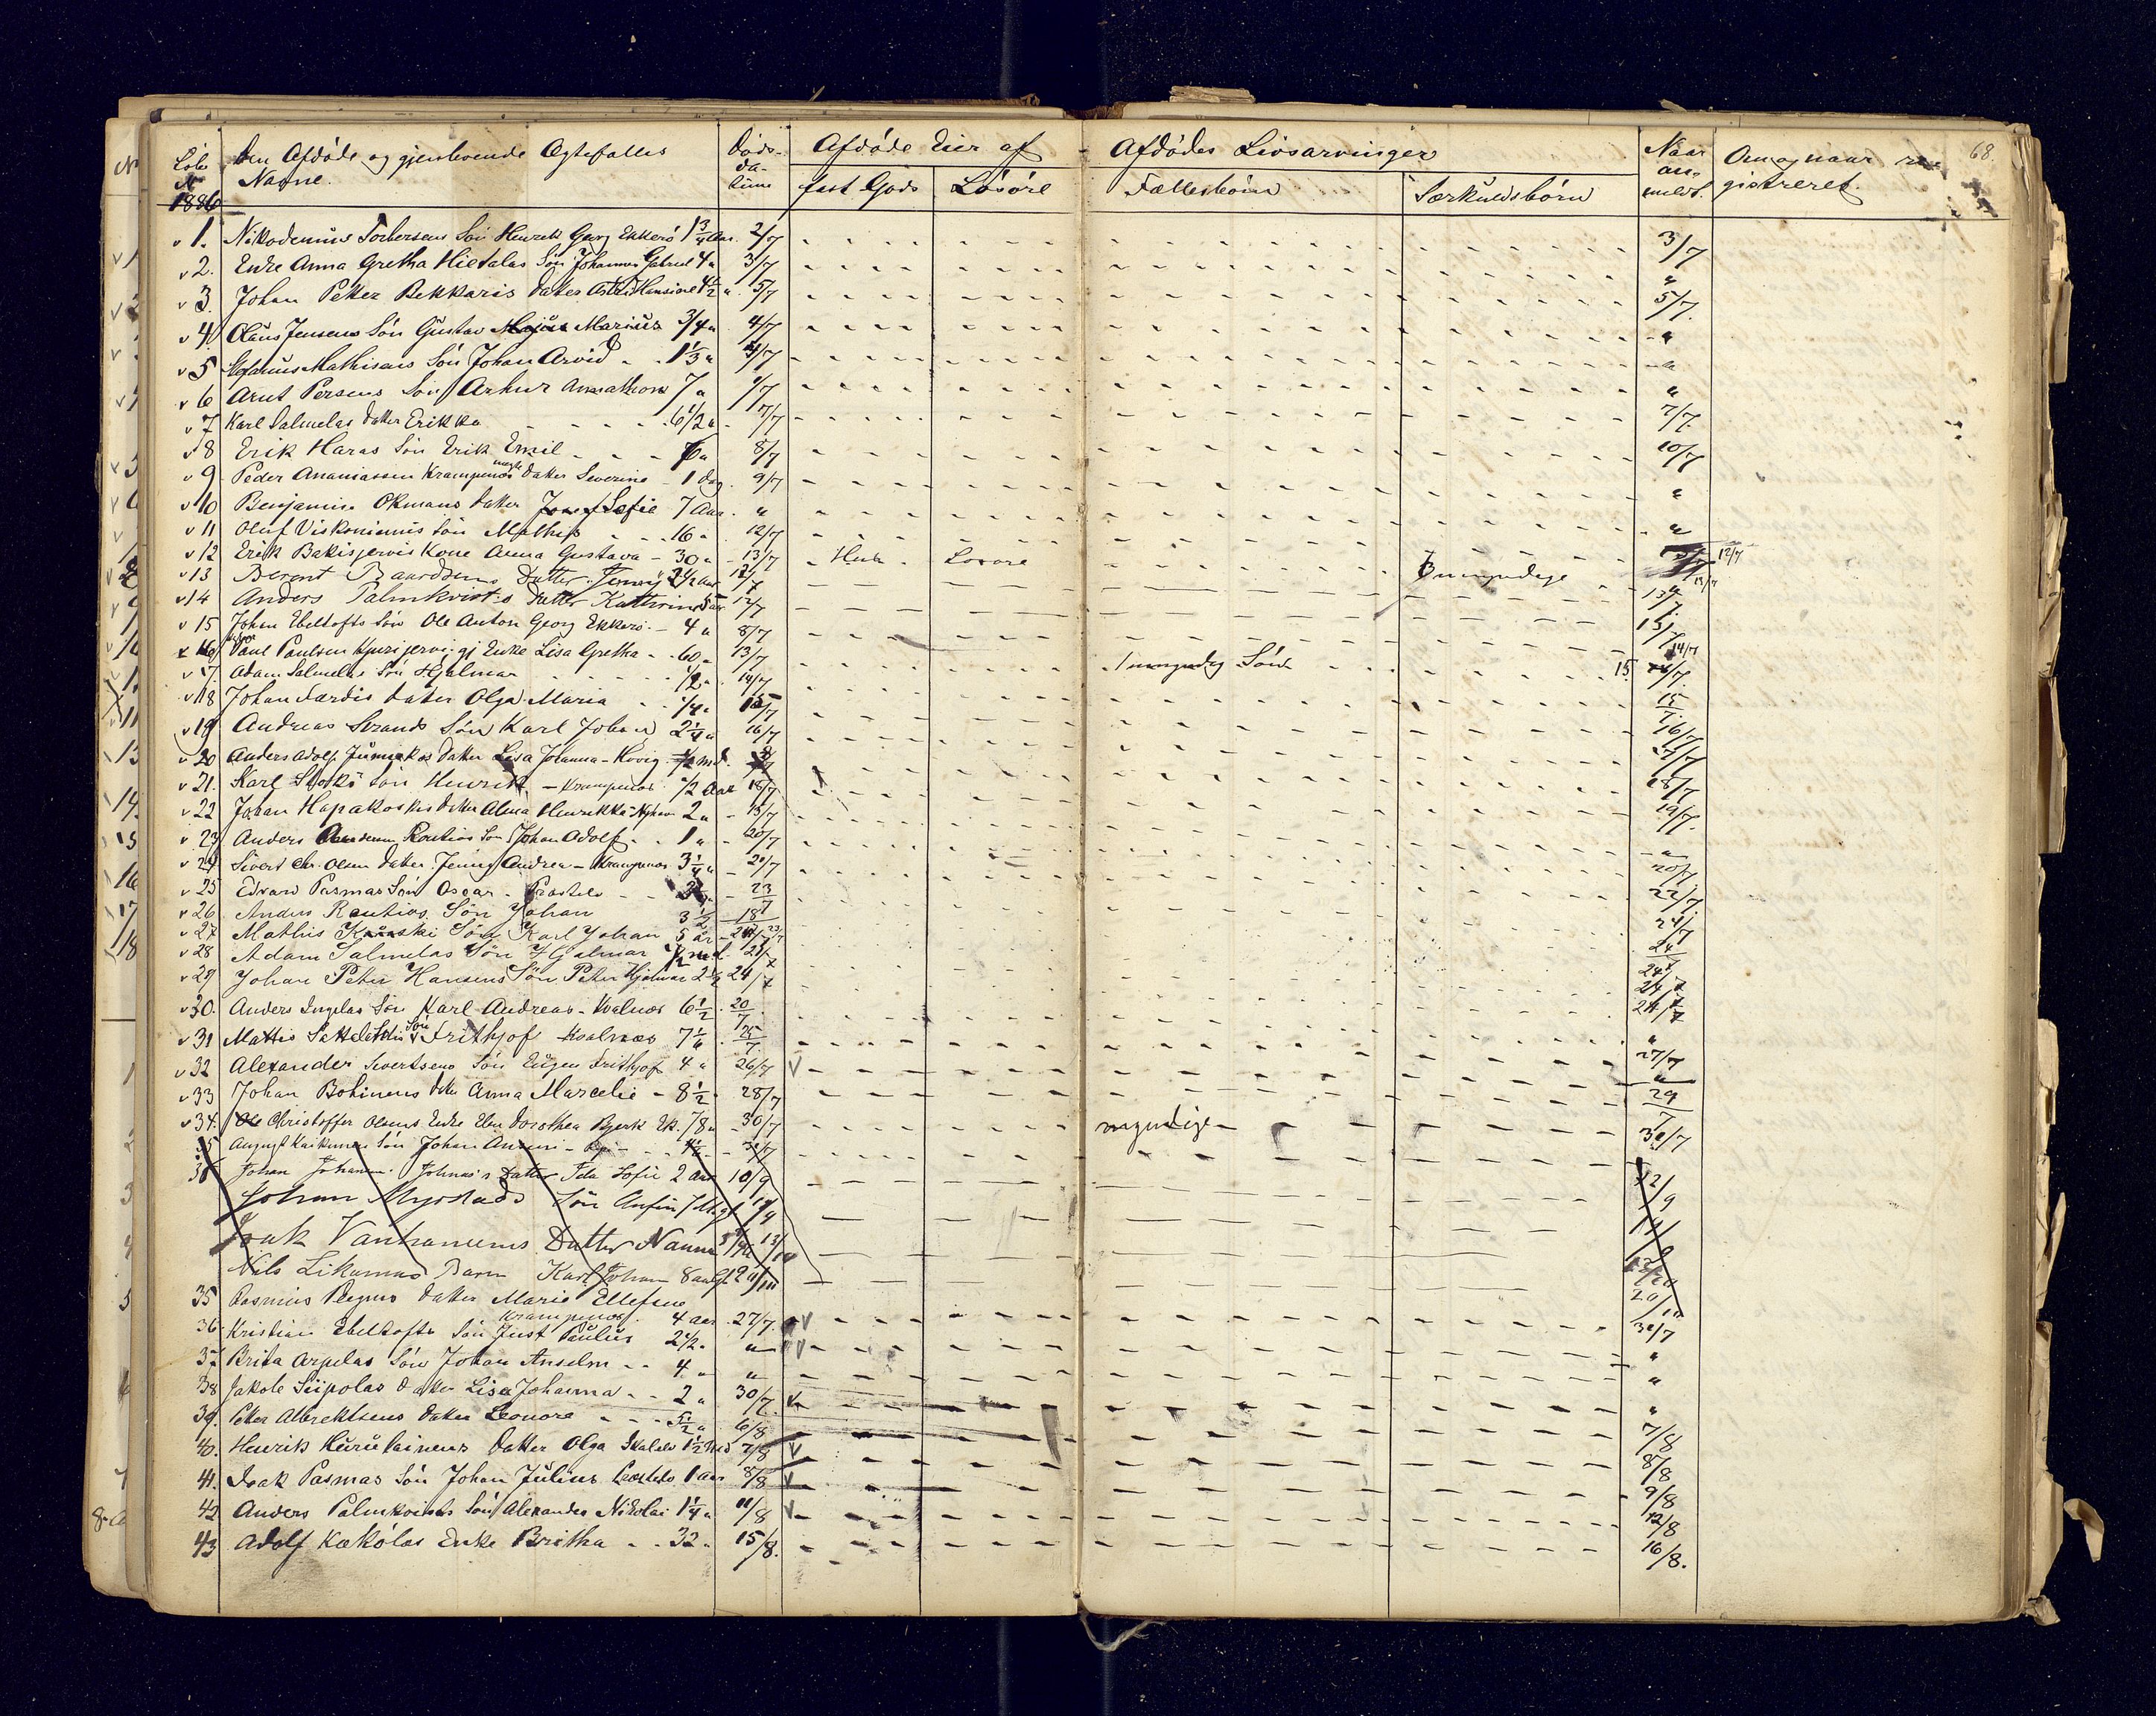 68.
Löbe Den Afdöde og gjenlevende Ægtefælles Döds- Afdöde Eier af Afdödes Livsarvinger Naar Om og naar re-
No Navne. da- fast Gods Lösöre Fællesbörn Særkuldsbörn an- gistreret.
1886 tum meldt.
1. Nikodemus Torbersens Sön Henrik Georg Ekkerö 1 3/4 Aar. 2/7 3/7
2. Enke Anna Gretha Hietalas Sön Johannes Gabriel 4 " 3/7 "
3. Johan Peter Bekkaris Datter Astri Hansine 4 1/2 " 5/7 5/7.
4. Olaus Jensens Sön Gustav Marius 3/4 " 4/7 "
5 Mathisens Sön Johan Arvid 1 1/3 " 4/7 "
6 Arnt Persens Sön Arthur 7 " 7/7 "
7. Karl Salmelas Datter Erikka 6 1/2 " 7/7 7/7.
8 Erik Haras Sön Erik Emil 7 " 8/7 10/7
9 Peder Ananiassen Krampenæs Datter Severine 1 Dag. 9/7 "
10 Benjamin Okmans Datter Sofie 7 Aar. " "
11 Oluf Viskoniemis Sön Mathis 16 " 12/7
12 Erik Bakisjervis Kone Anna Gustava 30 " 13/7 Huus Lösöre 3 umyndige 12/7
13 Berent Baardsens Datter Jenny 2 1/2 aar 12/7 "
14 Anders Palmkvists Datter Kathrine 5 aar 12/7 13/7.
15 Johan Ebeltofts Sön Ole Anton Georg Ekkerö. 4 " 8/7 13/7
16 Paul Paulsen Kjurijervi gj Enke Lisa Gretha 60 " 13/7 1 umyndig Sön 14/7
17. Adam Salmelas Sön Hjalmar 1/2 " 14/7 15
18 Johan Færdis Datter Olga Maria 1/4 " 15/7 15/7
19 Andreas Strands Sön Karl Johan 2 1/4 " 16/7 16/7
20 Anders Adolf Junnikas Datter Lisa Johanna - Kovig 1/2 md. 17/7
21. Karl Stokkö Sön Henrik - Krampenæs 1/2 Aar 18/7 18/7
22 Johan Hapakoskis Datter Alma Henrikka 2 " 18/7 19/7.
23 Anders Andersen Rautios Sön Johan Adolf 1 " 20/7 "
24 Sivert Chr. Olsen Datter Jenny Andrea - Krampenæs 3 1/4 " 20/7 20/7
25 Edvard Pasmas Sön Oscar - Præstelv 23/7 22/7
26 Anders Rautios Sön Johan 3 1/2 18/7 24/7
27 Mathis Sön Karl Johan 5 aar 23/7 24/7
28 Adam Salmelas Sön Hjalmar 1/2 md. 21/7 24/7
29 Johan Peter Hansens Sön Peter Hjalmar 2 1/2 24/7 24/7
30. Anders Ingelas Sön Karl Andreas - Kvalnæs 6 1/2 20/7 24/7
31 Mattis Sön Frithjof Kvalnæs 7 1/2 25/7 "
32 Alexander Sivertsens Sön Eugen Frithjof 4 " 26/7 27/7
33 Johan Bohinens Datter Anna Marcelie 8 1/2 28/7 "
34. Christoffer Olsens Enke Elen Dorothea Bjerk Ek. 78 " 30/7 myndige 29/7
35 August Kaikunen Sön Johan Anseni 4 1/2 30/7 30/7
36 Johan Johannes Johnas's Datter Ida Sofie 2 Aar 10/9 12/9
Johan Myrstads Sön Anfin 17/9
Isak Vanhanens Datter Nanna 13/10
Nils Likamas Barn Karl Johan 8 aar gl. 20/10
35 Rasmus Pleyms Datter Marie Ellefine
Krampenæs. 4 Aar 27/7. 30/7
36. Kristian Ebeltofts Sön Just Paulus 2 1/2 " " "
37 Brita Arpelas Sön Johan Anselm 4 " " "
38 Jakob Siipolas Datter Lisa Johanna 2 " 30/7. "
39. Peter Albrektsens Datter Leonore 5 1/2 " 6/8 7/8
40. Henrik Hurulainens Datter Olga Skalelv 1 1/2 Md 7/8 8/8
41. Isak Pasmas Sön Johan Julius Præstelv 1 aar 8/8 9/8
42 Anders Palmkvists Sön Alexander Nikolai 1 1/4 " 11/8 12/8
43 Adolf Kækölas Enke Britha 32 " 15/8. 16/8.